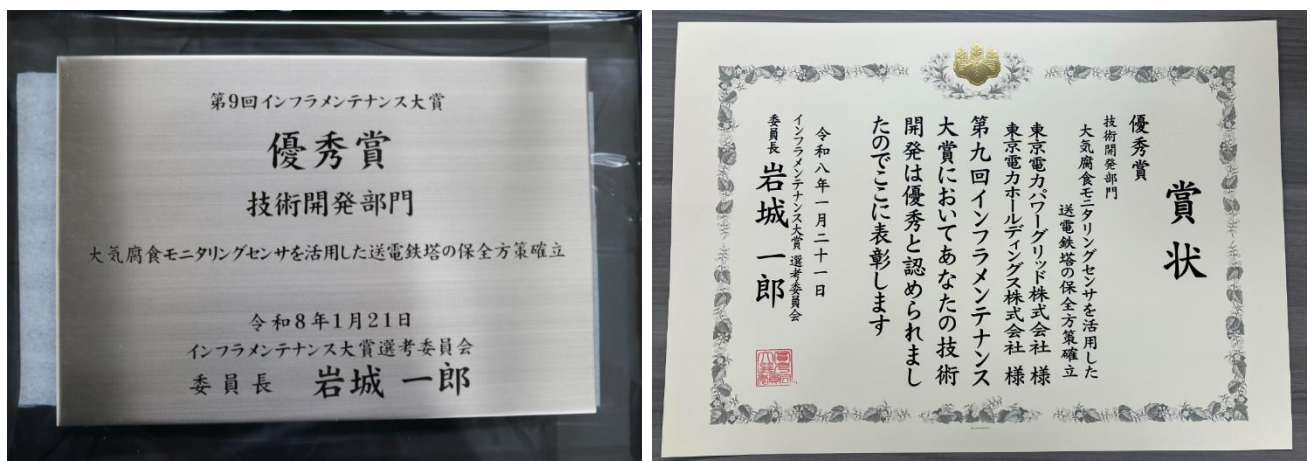 第9回インフラメンテナンス大賞
優秀賞
技術開発部門
大気腐食モニタリングセンサを活用した送電鉄塔の保全方策確立
令和8年1月21日
インフラメンテナンス大賞選考委員会
委員長 岩城 一郎
賞状
優秀賞
技術開発部門
大気腐食モニタリングセンサを活用した
送電鉄塔の保全方策確立
東京電力パワーグリッド株式会社 様
東京電力ホールディングス株式会社 様
第九回インフラメンテナンス
大賞においてあなたの技術
開発は優秀と認められまし
たのでここに表彰します
令和八年一月二十一日
インフラメンテナンス大賞 選考委員会
委員長 岩城 一郎